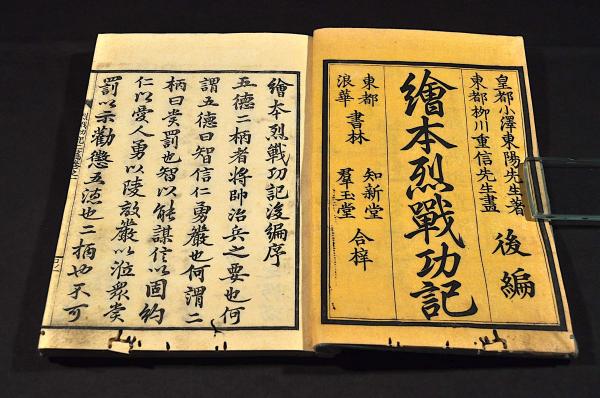 皇都小澤東陽先生著
東都栁川重信先生畫
後編
繪本烈戰功記
東都
浪華
書林
知新堂
羣玉堂
合梓
繪本烈戰功記後編序
五德二柄者將帥治兵之要也何
謂五德曰智信仁勇嚴也何謂二
柄曰賞罰也智以能謀信以固約
仁以愛人勇以陵敵嚴以涖衆賞
罰以示勸懲五德也二柄也不可